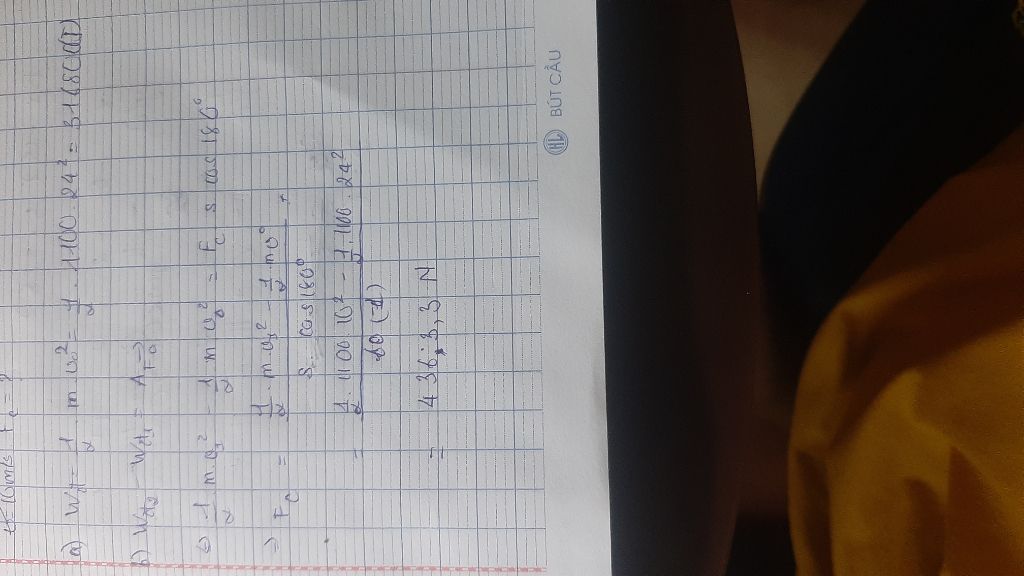 10m/s Fc = ?
a) Wđ = 1/2 . m v² = 1/2 . 1100 24² = 3168
b) Wđ2 - Wđ1 = A
⇔ 1/2 m v² - 1/2 m v² = Fc s cos 180°
⇒ Fc = (1/2 m v² - 1/2 m v°) / (s. cos 180°)
= (1/2 1100 10² - 1/2 . 1100. 24²) / ( (-1))
= 436 3,3 N
HL BÚT CÂU